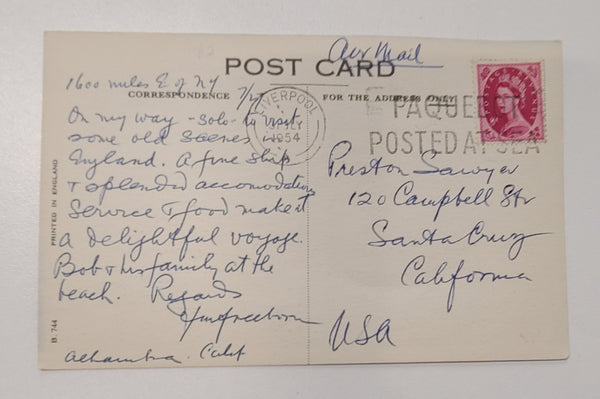 Air Mail
POST CARD
1600 miles E. of NY
CORRESPONDENCE
FOR THE ADDRESS ONLY
On my way - solo - to visit
some old scenes in
England. A fine ship
& splendid accomodations
Service & food make it
a delightful voyage.
Bob & his family at the
beach. Regards
Alhambra. Calif
LIVERPOOL
JLY
1954
PAQUE
POSTED AT SEA
POSTAGE REVENUE
Preston Sawyer
120 Campbell Str
Santa Cruz
California
USA
PRINTED IN ENGLAND
B. 744